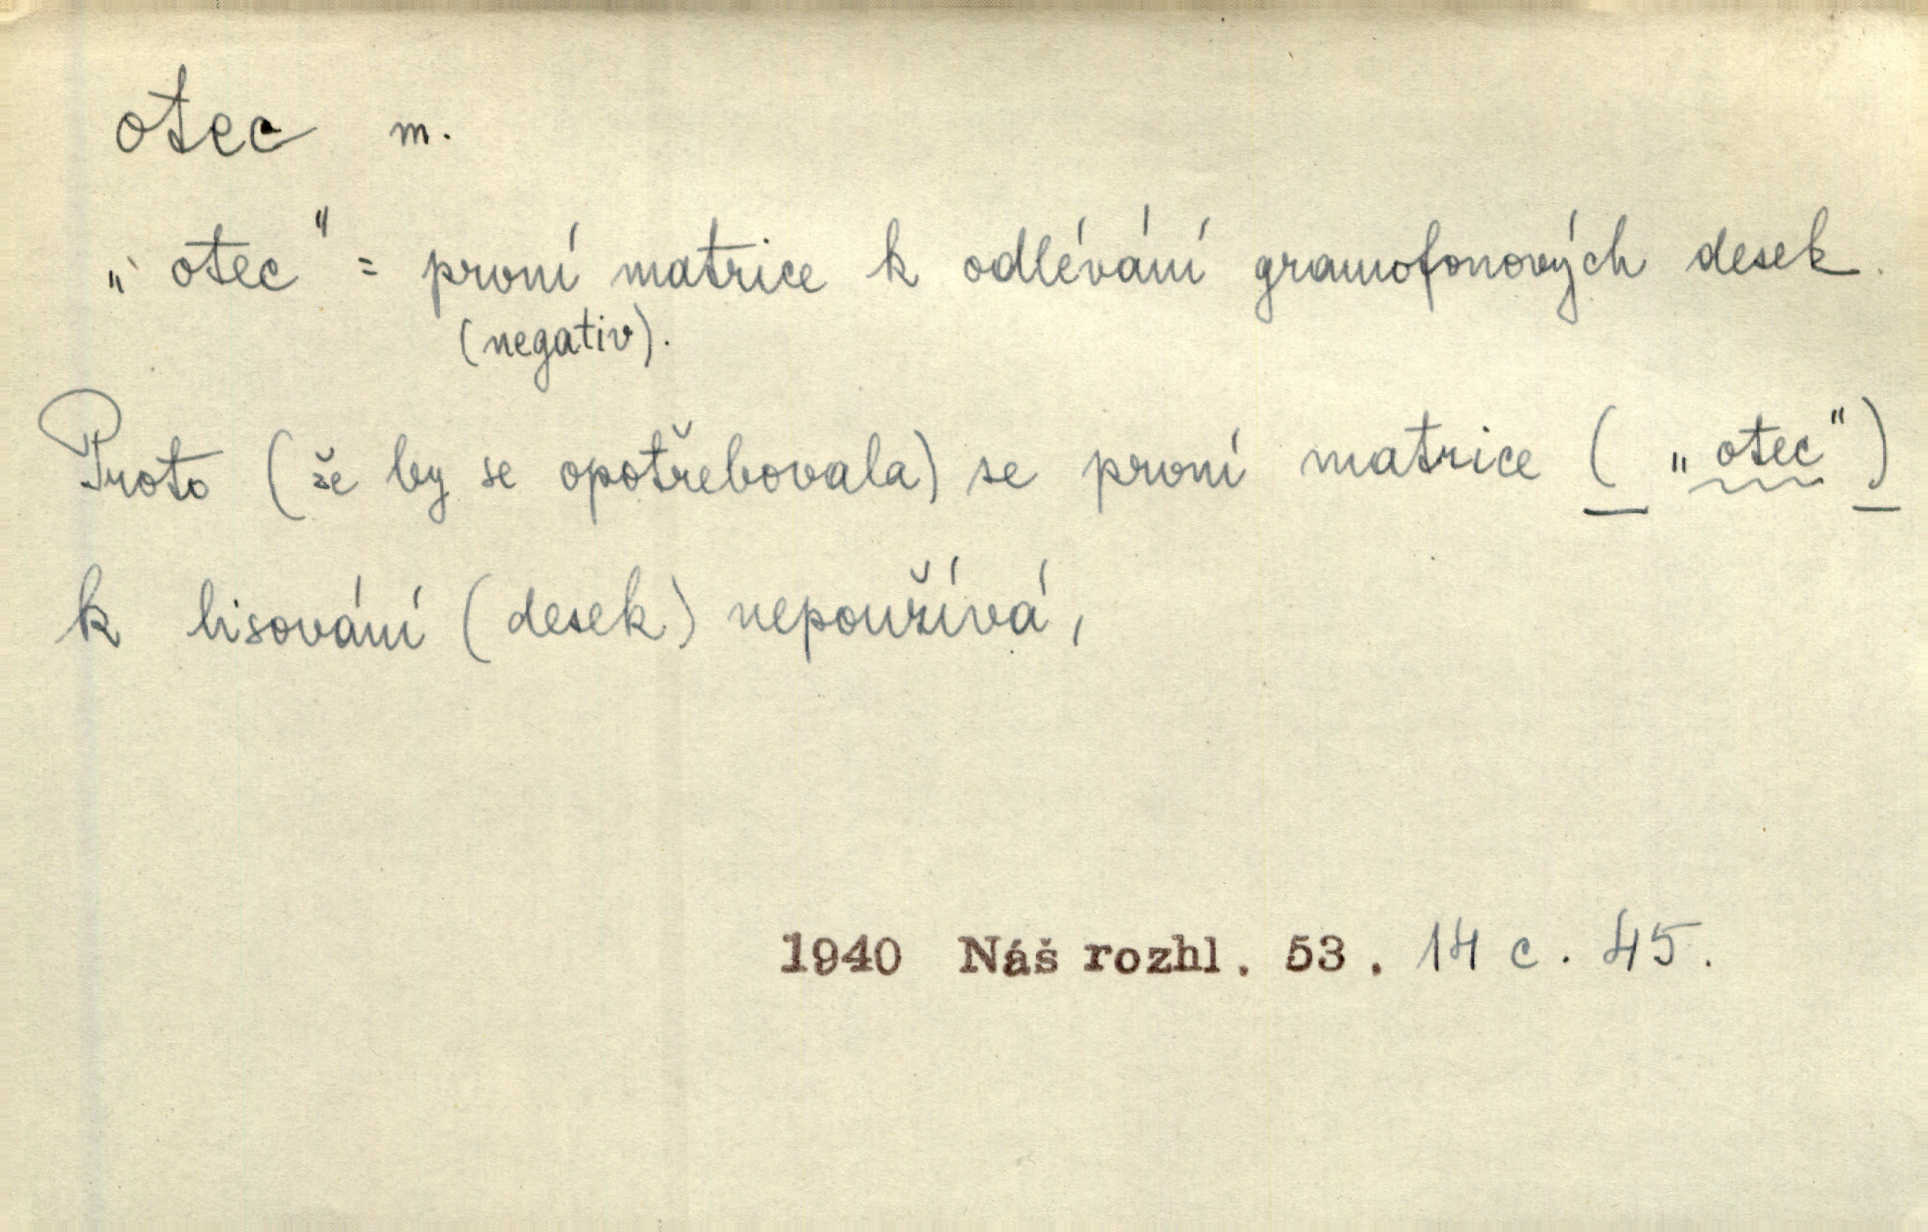 otec m.
„otec" = první matrice k odlévání gramofonových desek.
(negativ).
Proto (že by se opotřebovala) se první matrice („otec")
k lisování (desek) nepoužívá,
1940 Náš rozhl. 53. 14 c. 45.